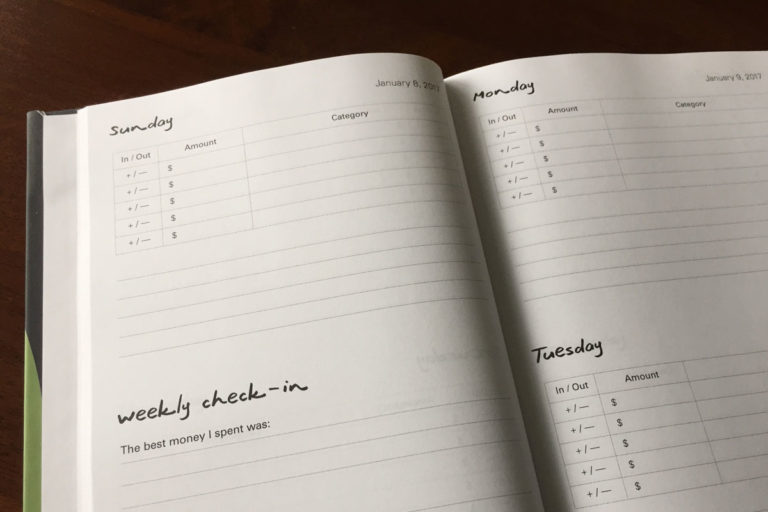 January 8, 2017
Sunday
In / Out Amount Category
+ / — $
+ / — $
+ / — $
+ / — $
+ / — $
weekly check-in
The best money I spent was:
January 9, 2017
Monday
In / Out Amount Category
+ / — $
+ / — $
+ / — $
+ / — $
+ / — $
Tuesday
In / Out Amount
+ / — $
+ / — $
+ / — $
+ / — $
+ / — $